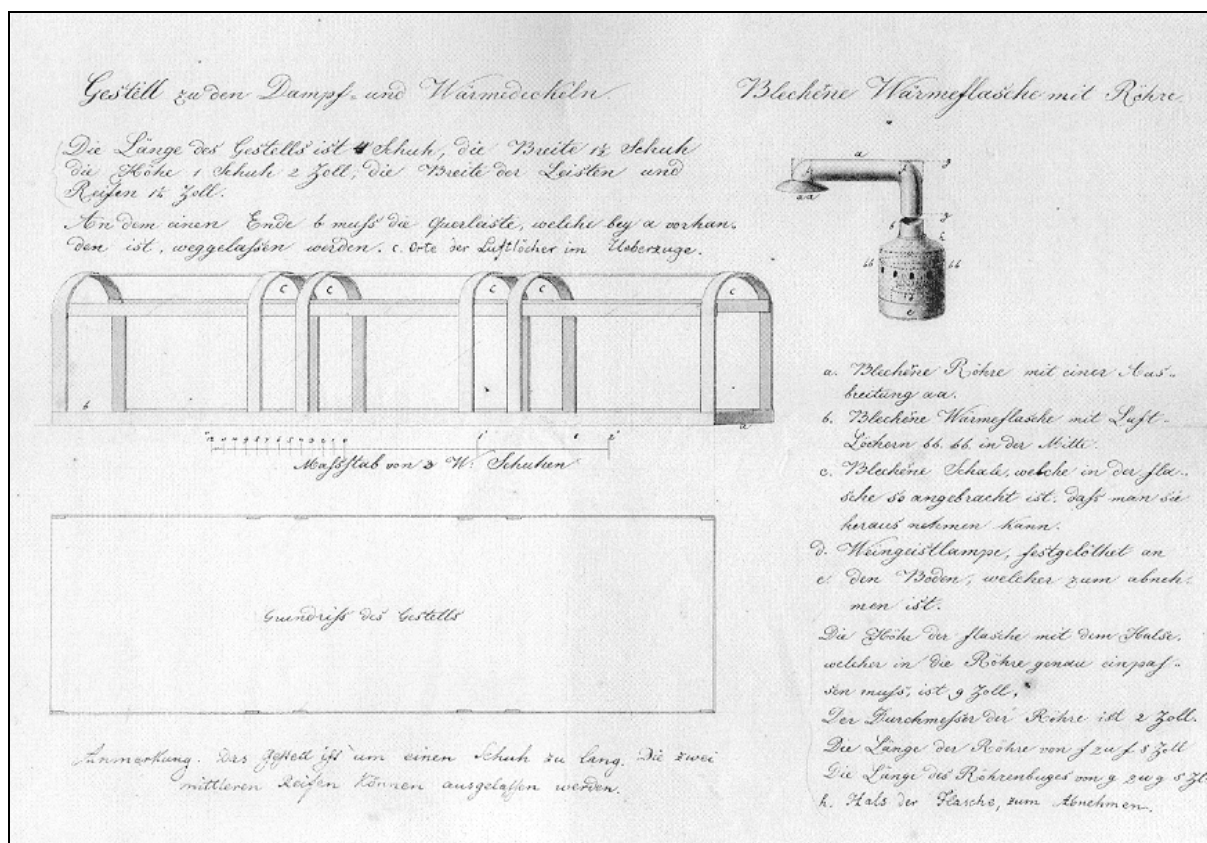 Gestell zu den Dampf- und Wärmedeckeln.
Die Länge des Gestells ist 4 Schuh, die Breite 1½ Schuh
die Höhe 1 Schuh 2 Zoll, die Breite der Leisten und
Reifen 1½ Zoll.
An dem einen Ende b muss die Querleiste, welche bey a vorhan-
den ist, weggelassen werden. c. Orte der Luftlöcher im Ueberzuge.
c c c c c
b
a
1 2
Massstab von 2 W. Schuhen
Grundriss des Gestells
Anmerkung. Das Gestell ist um einen Schuh zu lang. Die zwei
mittleren Reifen können ausgelassen werden.
Blecherne Wärmeflasche mit Röhre.
a g
aa
g
b h
bb bb
e
a. Blecherne Röhre mit einer Aus-
breitung aa.
b. Blecherne Wärmeflasche mit Luft-
Löchern bb. bb in der Mitte.
c. Blecherne Schale, welche in der Fla-
sche so angebracht ist, dass man sie
heraus nehmen kann.
d. Weingeistlampe, festgelöthet an
e. den Boden, welcher zum abneh-
men ist.
Die Höhe der Flasche mit dem Halse,
welcher in die Röhre genau einpas-
sen muss, ist 9 Zoll.
Der Durchmesser der Röhre ist 2 Zoll.
Die Länge der Röhre von f zu f 8 Zoll
Die Länge des Röhrenbuges von g zu g 5 Zl.
h. Hals der Flasche, zum Abnehmen.